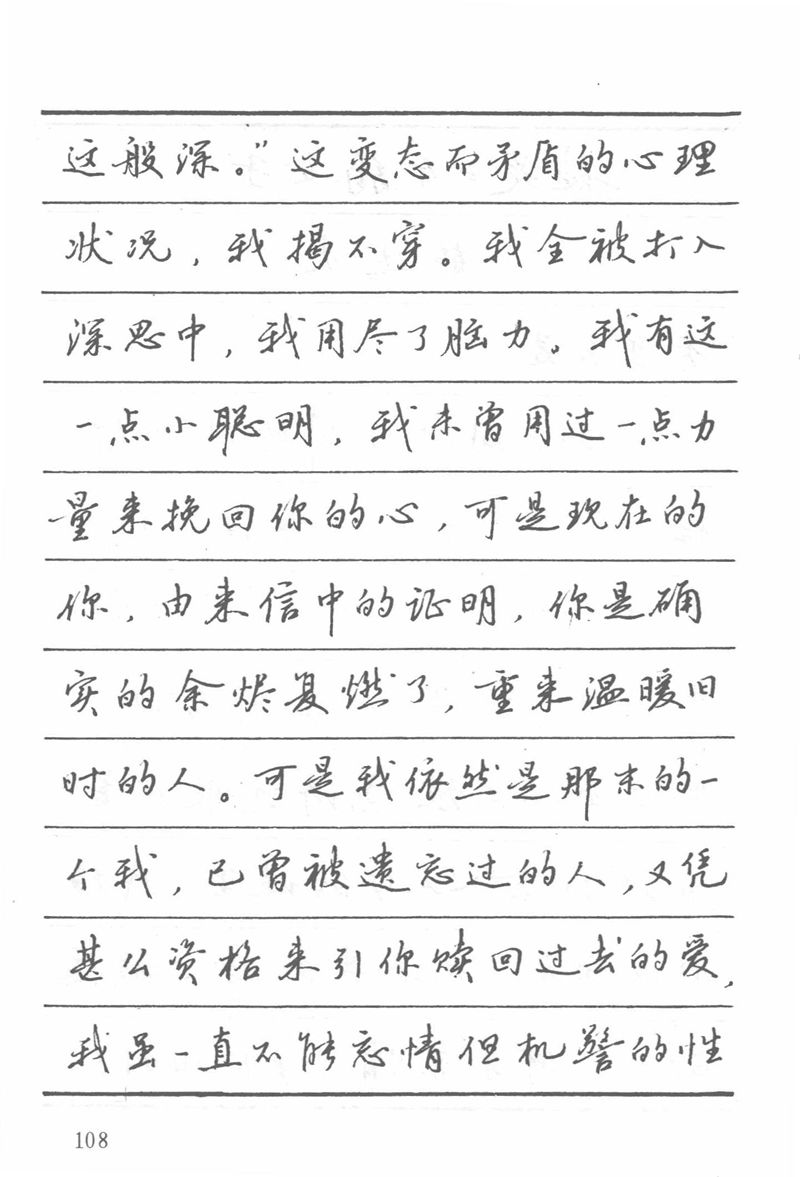 这般深。”这变态而矛盾的心理
状况，我揭不穿。我全被打入
深思中，我用尽了脑力。我有这
一点小聪明，我未曾用过一点力
量来挽回你的心，可是现在的
你，由来信中的证明，你是确
实的余烬复燃了，重来温暖旧
时的人。可是我依然是那末的一
个我，已曾被遗忘过的人，又凭
甚么资格来引你赎回过去的爱，
我虽一直不能忘情但机警的性
108